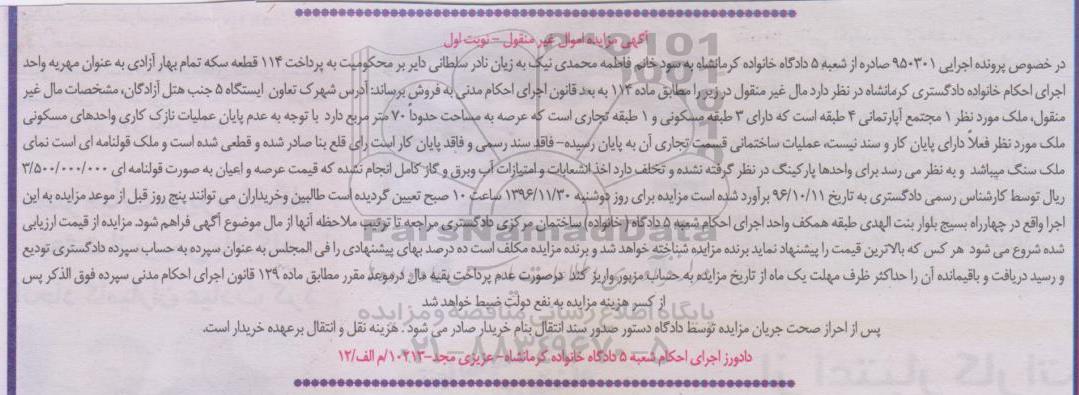 آگهی مزایده اموال غیر منقول – نوبت اول
در خصوص پرونده اجرایی ۹۵۰۳۰۱ صادره از شعبه ۵ دادگاه خانواده کرمانشاه به سود خانم فاطمه محمدی نیک به زیان نادر سلطانی دایر بر محکومیت به پرداخت ۱۱۴ قطعه سکه تمام بهار آزادی به عنوان مهریه واحد
اجرای احکام خانواده دادگستری کرمانشاه در نظر دارد مال غیر منقول در زیر را مطابق ماده ۱۱۴ به بعد قانون اجرای احکام مدنی به فروش برساند: آدرس شهرک تعاون ایستگاه ۵ جنب هتل آزادگان، مشخصات مال غیر
منقول، ملک مورد نظر ۱ مجتمع آپارتمانی ۴ طبقه است که دارای ۳ طبقه مسکونی و ۱ طبقه تجاری است که عرصه به مساحت حدوداً ۷۰ متر مربع دارد با توجه به عدم پایان عملیات نازک کاری واحدهای مسکونی
ملک مورد نظر فعلاً دارای پایان کار و سند نیست، عملیات ساختمانی قسمت تجاری آن به پایان رسیده– فاقد سند رسمی و فاقد پایان کار است رای قلع بنا صادر شده و قطعی شده است و ملک قولنامه ای است نمای
ملک سنگ میباشد و به نظر می رسد برای واحدها پارکینگ در نظر گرفته نشده و تخلف دارد اخذ انشعابات و امتیازات آب وبرق و گاز کامل انجام نشده که قیمت عرصه و اعیان به صورت قولنامه ای ۳/۵۰۰/۰۰۰/۰۰۰
ریال توسط کارشناس رسمی دادگستری به تاریخ ۹۶/۱۰/۱۱ برآورد شده است مزایده برای روز دوشنبه ۱۳۹۶/۱۱/۳۰ ساعت ۱۰ صبح تعیین گردیده است طالبین وخریداران می توانند پنج روز قبل از موعد مزایده به این
اجرا واقع در چهارراه بسیج بلوار بنت الهدی طبقه همکف واحد اجرای احکام شعبه ۵ دادگاه (خانواده) ساختمان مرکزی دادگستری مراجعه تا ترتیب ملاحظه آنها از مال موضوع آگهی فراهم شود. مزایده از قیمت ارزیابی
شده شروع می شود هر کس که بالاترین قیمت را پیشنهاد نماید برنده مزایده شناخته خواهد شد و برنده مزایده مکلف است ده درصد بهای پیشنهادی را فی المجلس به عنوان سپرده به حساب سپرده دادگستری تودیع
و رسید دریافت و باقیمانده آن را حداکثر ظرف مهلت یک ماه از تاریخ مزایده به حساب مزبور واریز کند درصورت عدم پرداخت بقیه مال درموعد مقرر مطابق ماده ۱۲۹ قانون اجرای احکام مدنی سپرده فوق الذکر پس
از کسر هزینه مزایده به نفع دولت ضبط خواهد شد
پس از احراز صحت جریان مزایده توسط دادگاه دستور صدور سند انتقال بنام خریدار صادر می شود . هزینه نقل و انتقال برعهده خریدار است.
دادورز اجرای احکام شعبه ۵ دادگاه خانواده کرمانشاه– عزیزی مجد–۱۰۲۱۳/م الف/۱۲
ParsNamadData
پایگاه اطلاع رسانی مناقصه و مزایده
۰۲۱–۸۸۳۴۹۶۷۰–۵